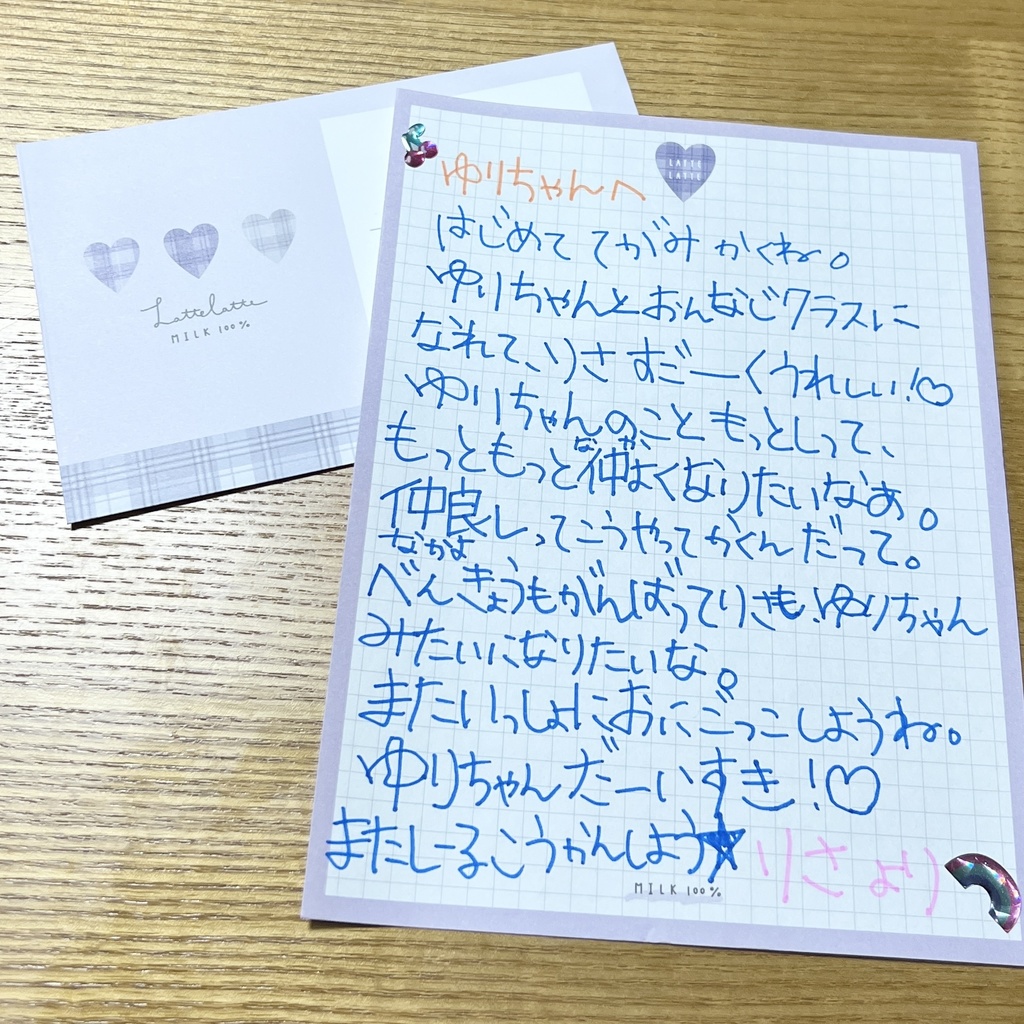 Lattelatte
MILK 100%
LATTE
LATTE
ゆりちゃんへ
はじめて てがみ かくね。
ゆりちゃんとおんなじクラスに
なれて、りさ すごーくうれしい!♡
ゆりちゃんのこと もっとしって、
もっともっと仲よくなりたいなあ。
なか
仲良しってこうやってかくんだって。
なかよ
べんきょうもがんばってりさも、ゆりちゃん
みたいになりたいな。
またいっしょにおにごっこしようね。
ゆりちゃんだーいすき!♡
またしーるこうかんしよう★
りさより
MILK 100%